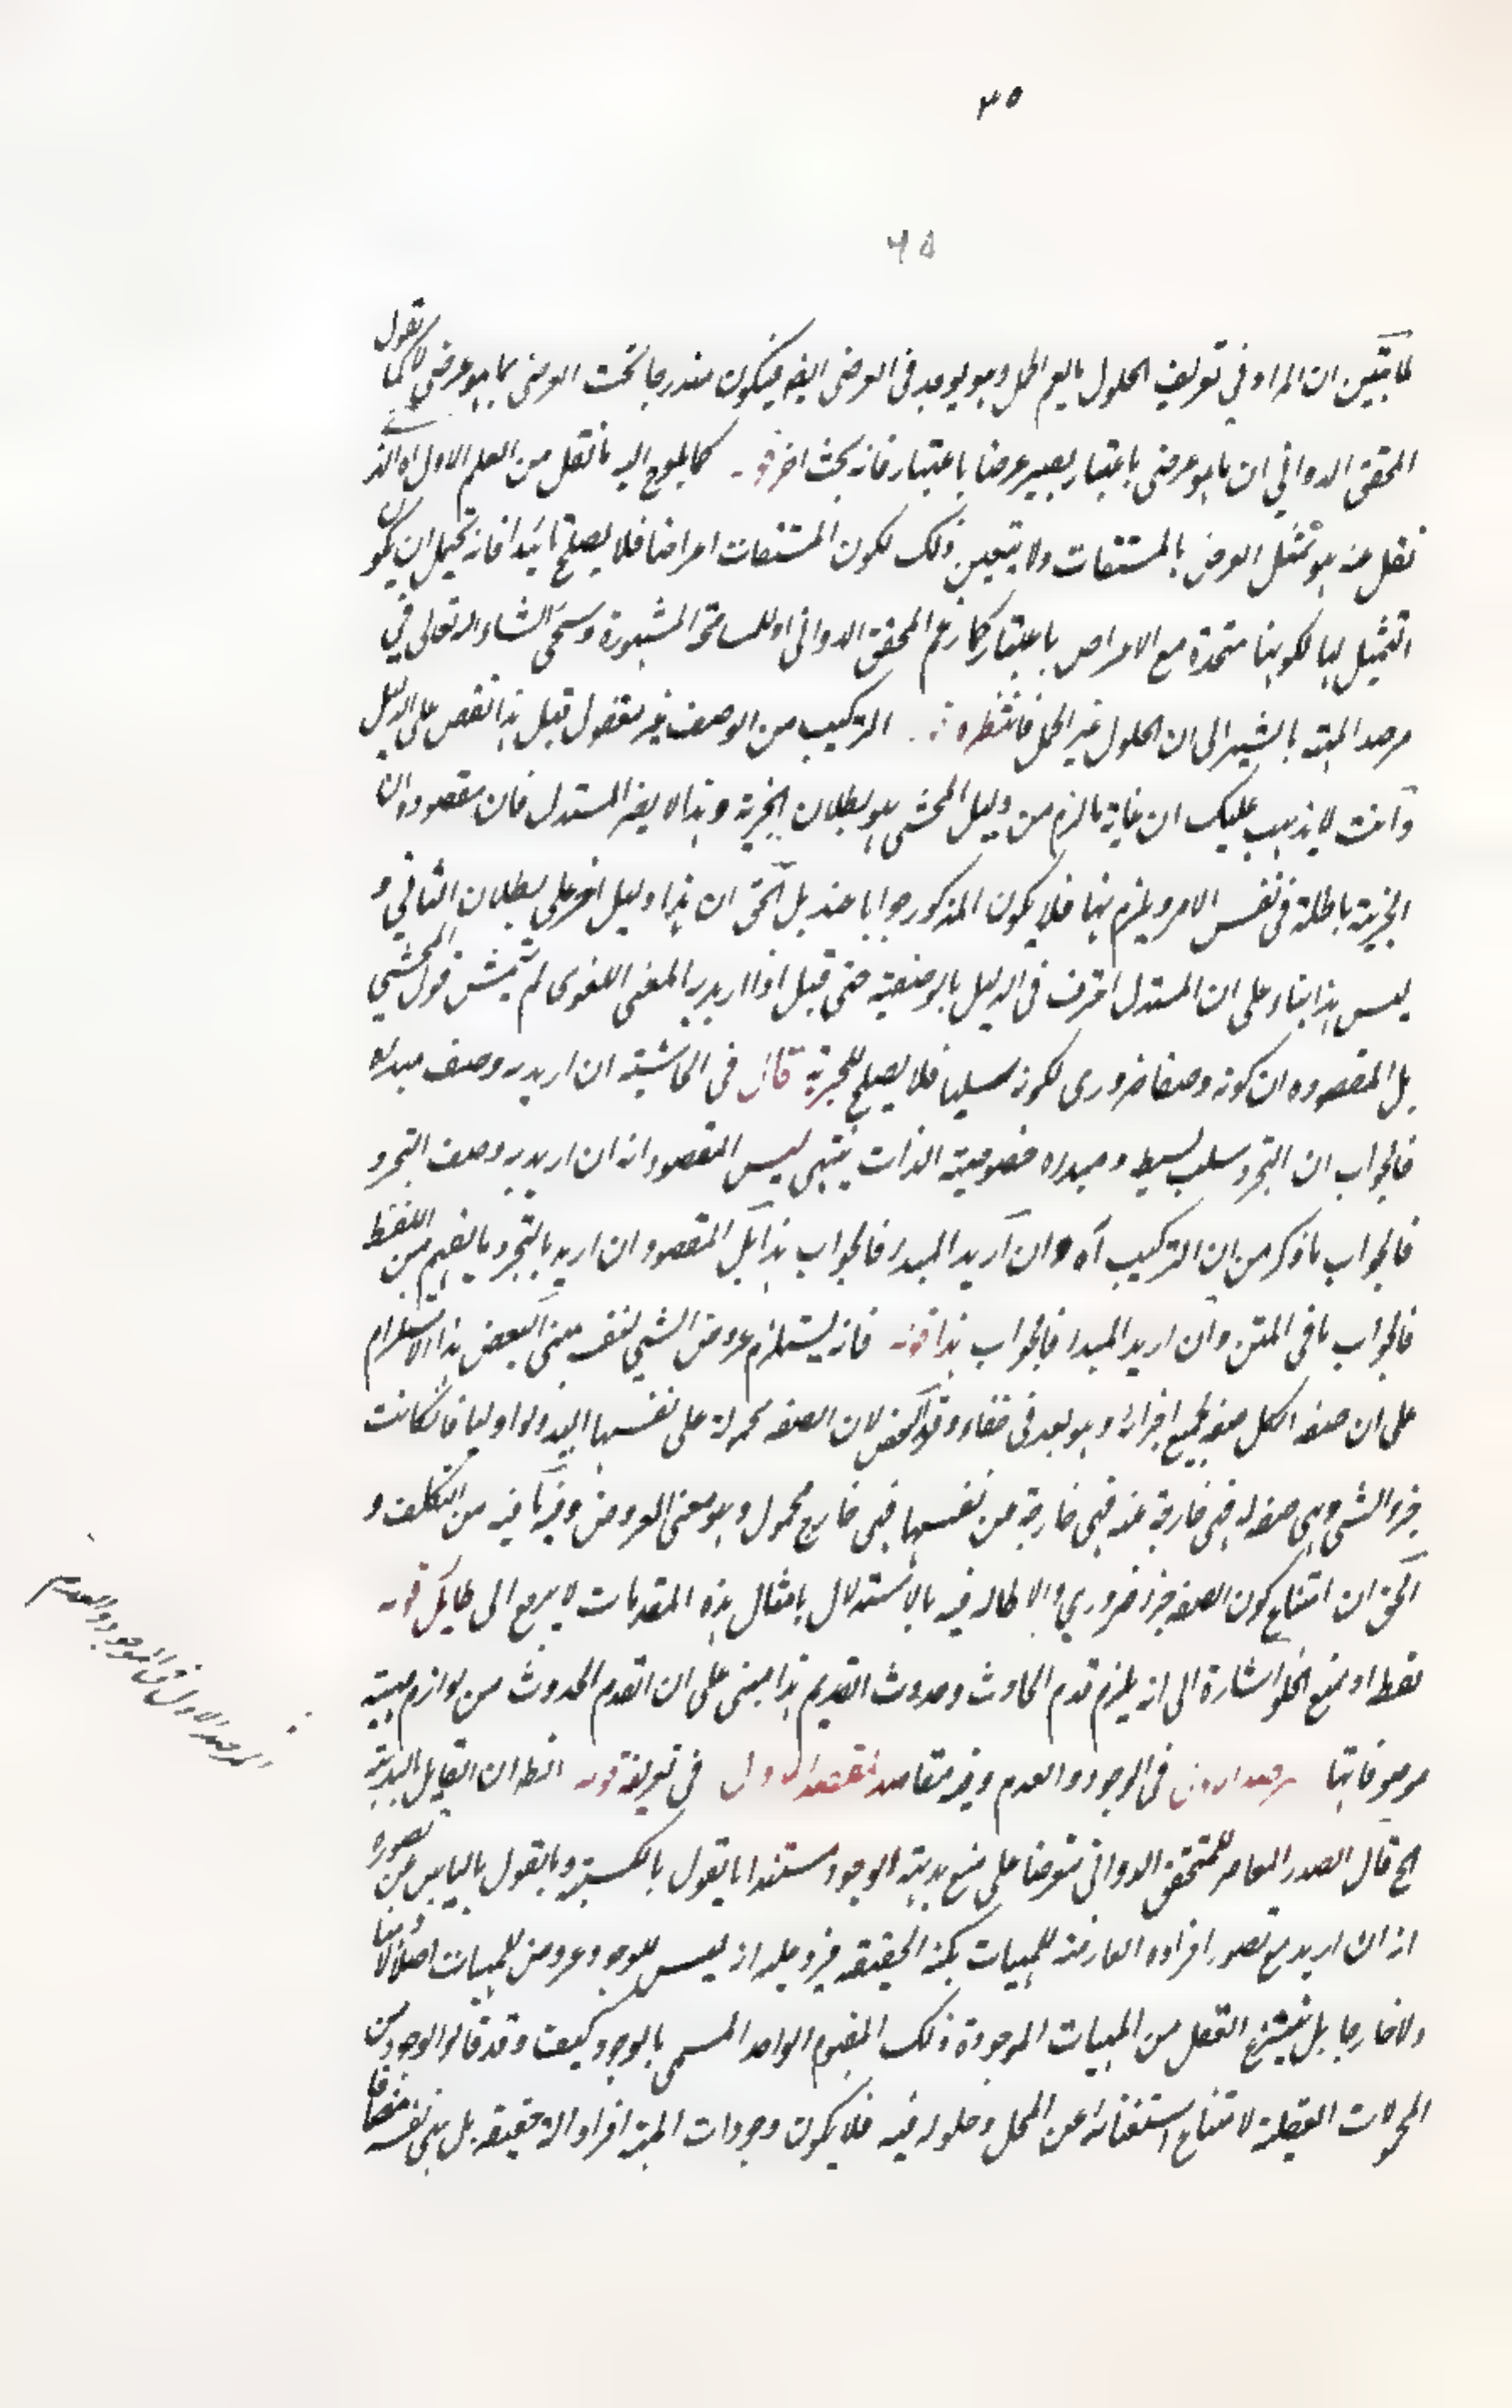 ٣٥
٦٥
لما تبين ان المراد في تعريف الحلول ما يعم الحمل وهو يوجد في العرضي ايضا فيكون مندرجا تحت العرض بما هو عرضي لا كما يقول
المحقق الدواني ان ما هو عرضي باعتبار يصير عرضا باعتبار فانه بحث اخر قوله كما يلوح اليه ما نقل من المعلم الاول اه الذي
نقل عنه هو تمثيل العرض بالمشتقات ولا يتعين ذلك لكون المشتقات اعراضا فلا يصلح تائيدا فانه يحتمل ان يكون
التمثيل بها لكونها متحدة مع الاعراض باعتبار كما زعم المحقق الدواني او للمسامحة المشهورة وسيجي انشاء الله تعالى في
مرصد المهية ما يشير الى ان الحلول غير الحمل فانتظره قوله التركيب من الوصف غير معقول قيل هذا نقض على الدليل
وانت لا يذهب عليك ان غاية ما لزم من دليل المحشي هو بطلان الجزئية وهذا لا يضر المستدل فان مقصوده ان
الجزئية باطلة في نفس الامر ويلزم هنا فلا يكون المذكور جوابا عنه بل الحق ان هذا دليل اخر على بطلان الثاني و
ليس هذا بناء على ان المستدل اعترف في الدليل بالوصفية حتى قيل اذا اريد به المعنى اللغوي لم يتمش قول المحشي
بل المقصود ان كونه وصفا ضروري لكونه سلبيا فلا يصلح للجزئية قال في الحاشية ان اريد به وصف مبدءه
فالجواب ان التجرد سلب بسيط ومبدءه خصوصية الذات ينتهي ليس المقصود انه ان اريد به وصف التجرد
فالجواب ما ذكر من ان التركيب اه وان اريد المبدء فالجواب هذا بل المقصود ان اريد بالتجرد ما يفهم من اللفظ
فالجواب ما في المتن وان اريد المبدا فالجواب هذا قوله فانه يستلزم عروض الشي لنفسه مبنى البعض هذا الاستلزام
على ان صفة الكل صفة لجميع اجزائه وهو بعد في خفاء وقد لان الصفة محمولة على نفسها اولوا اوليا فاذا كانت
جزء الشي وهي صفة له فهي خارجة عنه فهي خارجة من نفسها فهي خارج محمول وهو معنى العروض وفيه ما فيه من التكلف و
الحق ان امتناع كون الصفة جزء ضروري والاطالة فيه بالاستدلال بامثال هذه المقدمات لا يرجع الى طايل قوله
فقط او منع الخلو اشارة الى انه يلزم قدم الحادث وحدوث القديم هذا مبني على ان القدم والحدوث من لوازم مهية
موصوفاتها المرصد الاول في الوجود والعدم وفيه مقاصد المقصد الاول في تعريفه قوله الظ ان القايل بالبديهة
الخ قال الصدر المعاصر للمحقق الدواني معترضا على منع بديهة الوجود مستندا بما يقول بالكسبية وما يقول باليأس عن تصوره
انه ان اريد مع تصور افراده العارضة للمهيات بكنه الحقيقة فيرد عليه انه ليس للوجود عروض للمهيات اصلا لا ذهنا
ولا خارجا بل ينتزع العقل من المهيات الموجودة ذلك المفهوم الواحد المسمى بالوجود كيف وقد قالوا الوجود من
المحمولات العقلية لامتناع استغنائه عن المحل وحلوله فيه فلا يكون وجودات المهية افراد الحقيقة بل هي نفسه مضافا
المرصد الاول في الموجود والعدم